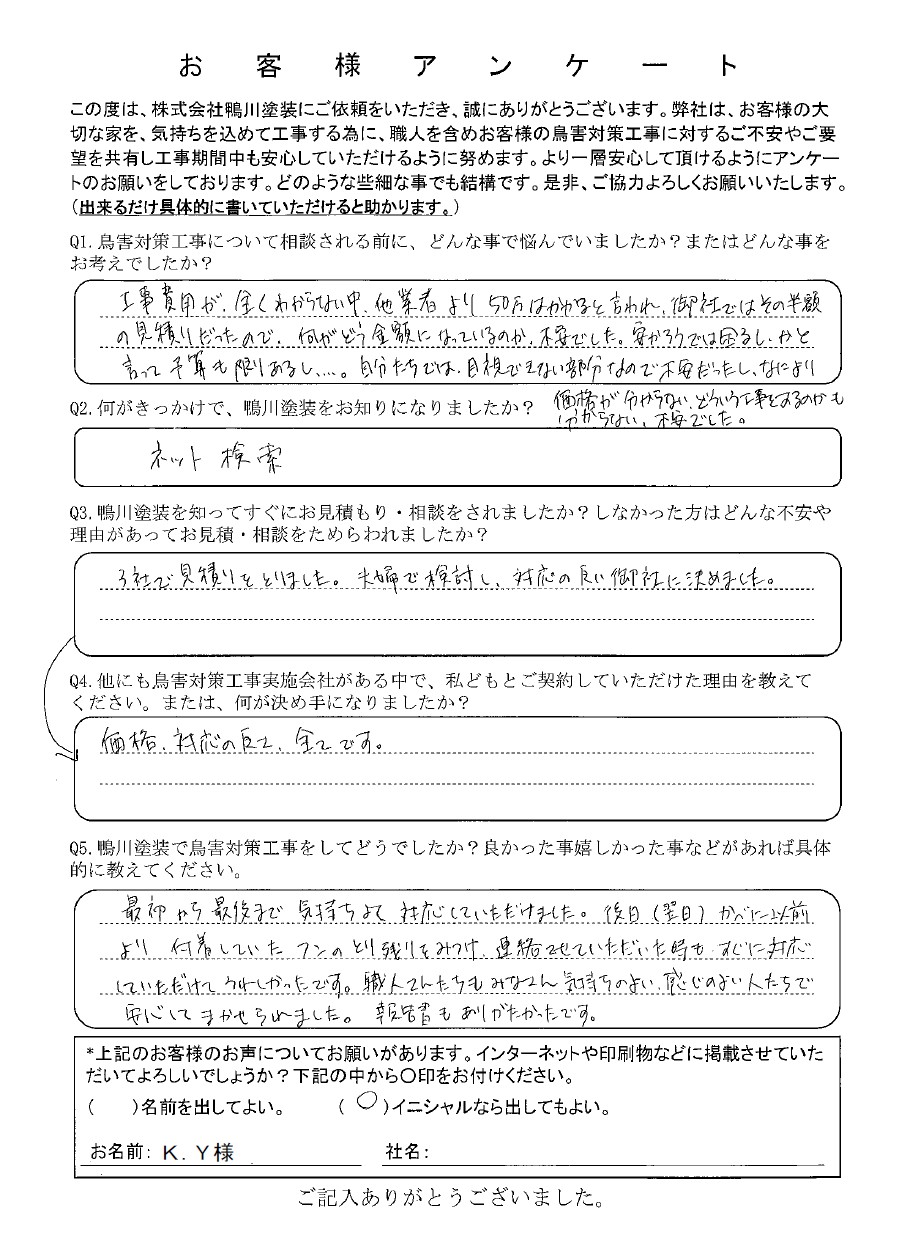 お客様アンケート
この度は、株式会社鴨川塗装にご依頼をいただき、誠にありがとうございます。弊社は、お客様の大
切な家を、気持ちを込めて工事する為に、職人を含めお客様の鳥害対策工事に対するご不安やご要
望を共有し工事期間中も安心していただけるように努めます。より一層安心して頂けるようにアンケー
トのお願いをしております。どのような些細な事でも結構です。是非、ご協力よろしくお願いいたします。
（出来るだけ具体的に書いていただけると助かります。）
Q1.鳥害対策工事について相談される前に、どんな事で悩んでいましたか？またはどんな事を
お考えでしたか？
工事費用が、全くわからない中、他業者より50万はかかると言われ、御社ではその半額
の見積りだったので、何がどう金額になっているのか、不安でした。安かろうでは困るし、かと
言って予算も限りあるし…。自分たちでは、目視できない部分なので不安だったし、なにより
価格が分からない、どういう工事をするのかも
分からない、不安でした。
Q2.何がきっかけで、鴨川塗装をお知りになりましたか？
ネット検索
Q3.鴨川塗装を知ってすぐにお見積もり・相談をされましたか？しなかった方はどんな不安や
理由があってお見積・相談をためらわれましたか？
3社で見積りをとりました。夫婦で検討し、対応の良い御社に決めました。
Q4.他にも鳥害対策工事実施会社がある中で、私どもとご契約していただけた理由を教えて
ください。または、何が決め手になりましたか？
価格、対応の良さ、全てです。
Q5.鴨川塗装で鳥害対策工事をしてどうでしたか？良かった事嬉しかった事などがあれば具体
的に教えてください。
最初から最後まで気持ちよく対応していただけました。後日（翌日）かべに以前
より付着していたフンのとり残りをみつけ、連絡させていただいた時も、すぐに対応
していただけてうれしかったです。職人さんたちもみなさん気持ちのよい、感じのよい人たちで
安心してまかせられました。報告書もありがたかったです。
*上記のお客様のお声についてお願いがあります。インターネットや印刷物などに掲載させていた
だいてよろしいでしょうか？下記の中から〇印をお付けください。
（　　）名前を出してよい。　　（ ○ ）イニシャルなら出してもよい。
お名前：K．Y様　　社名：
ご記入ありがとうございました。